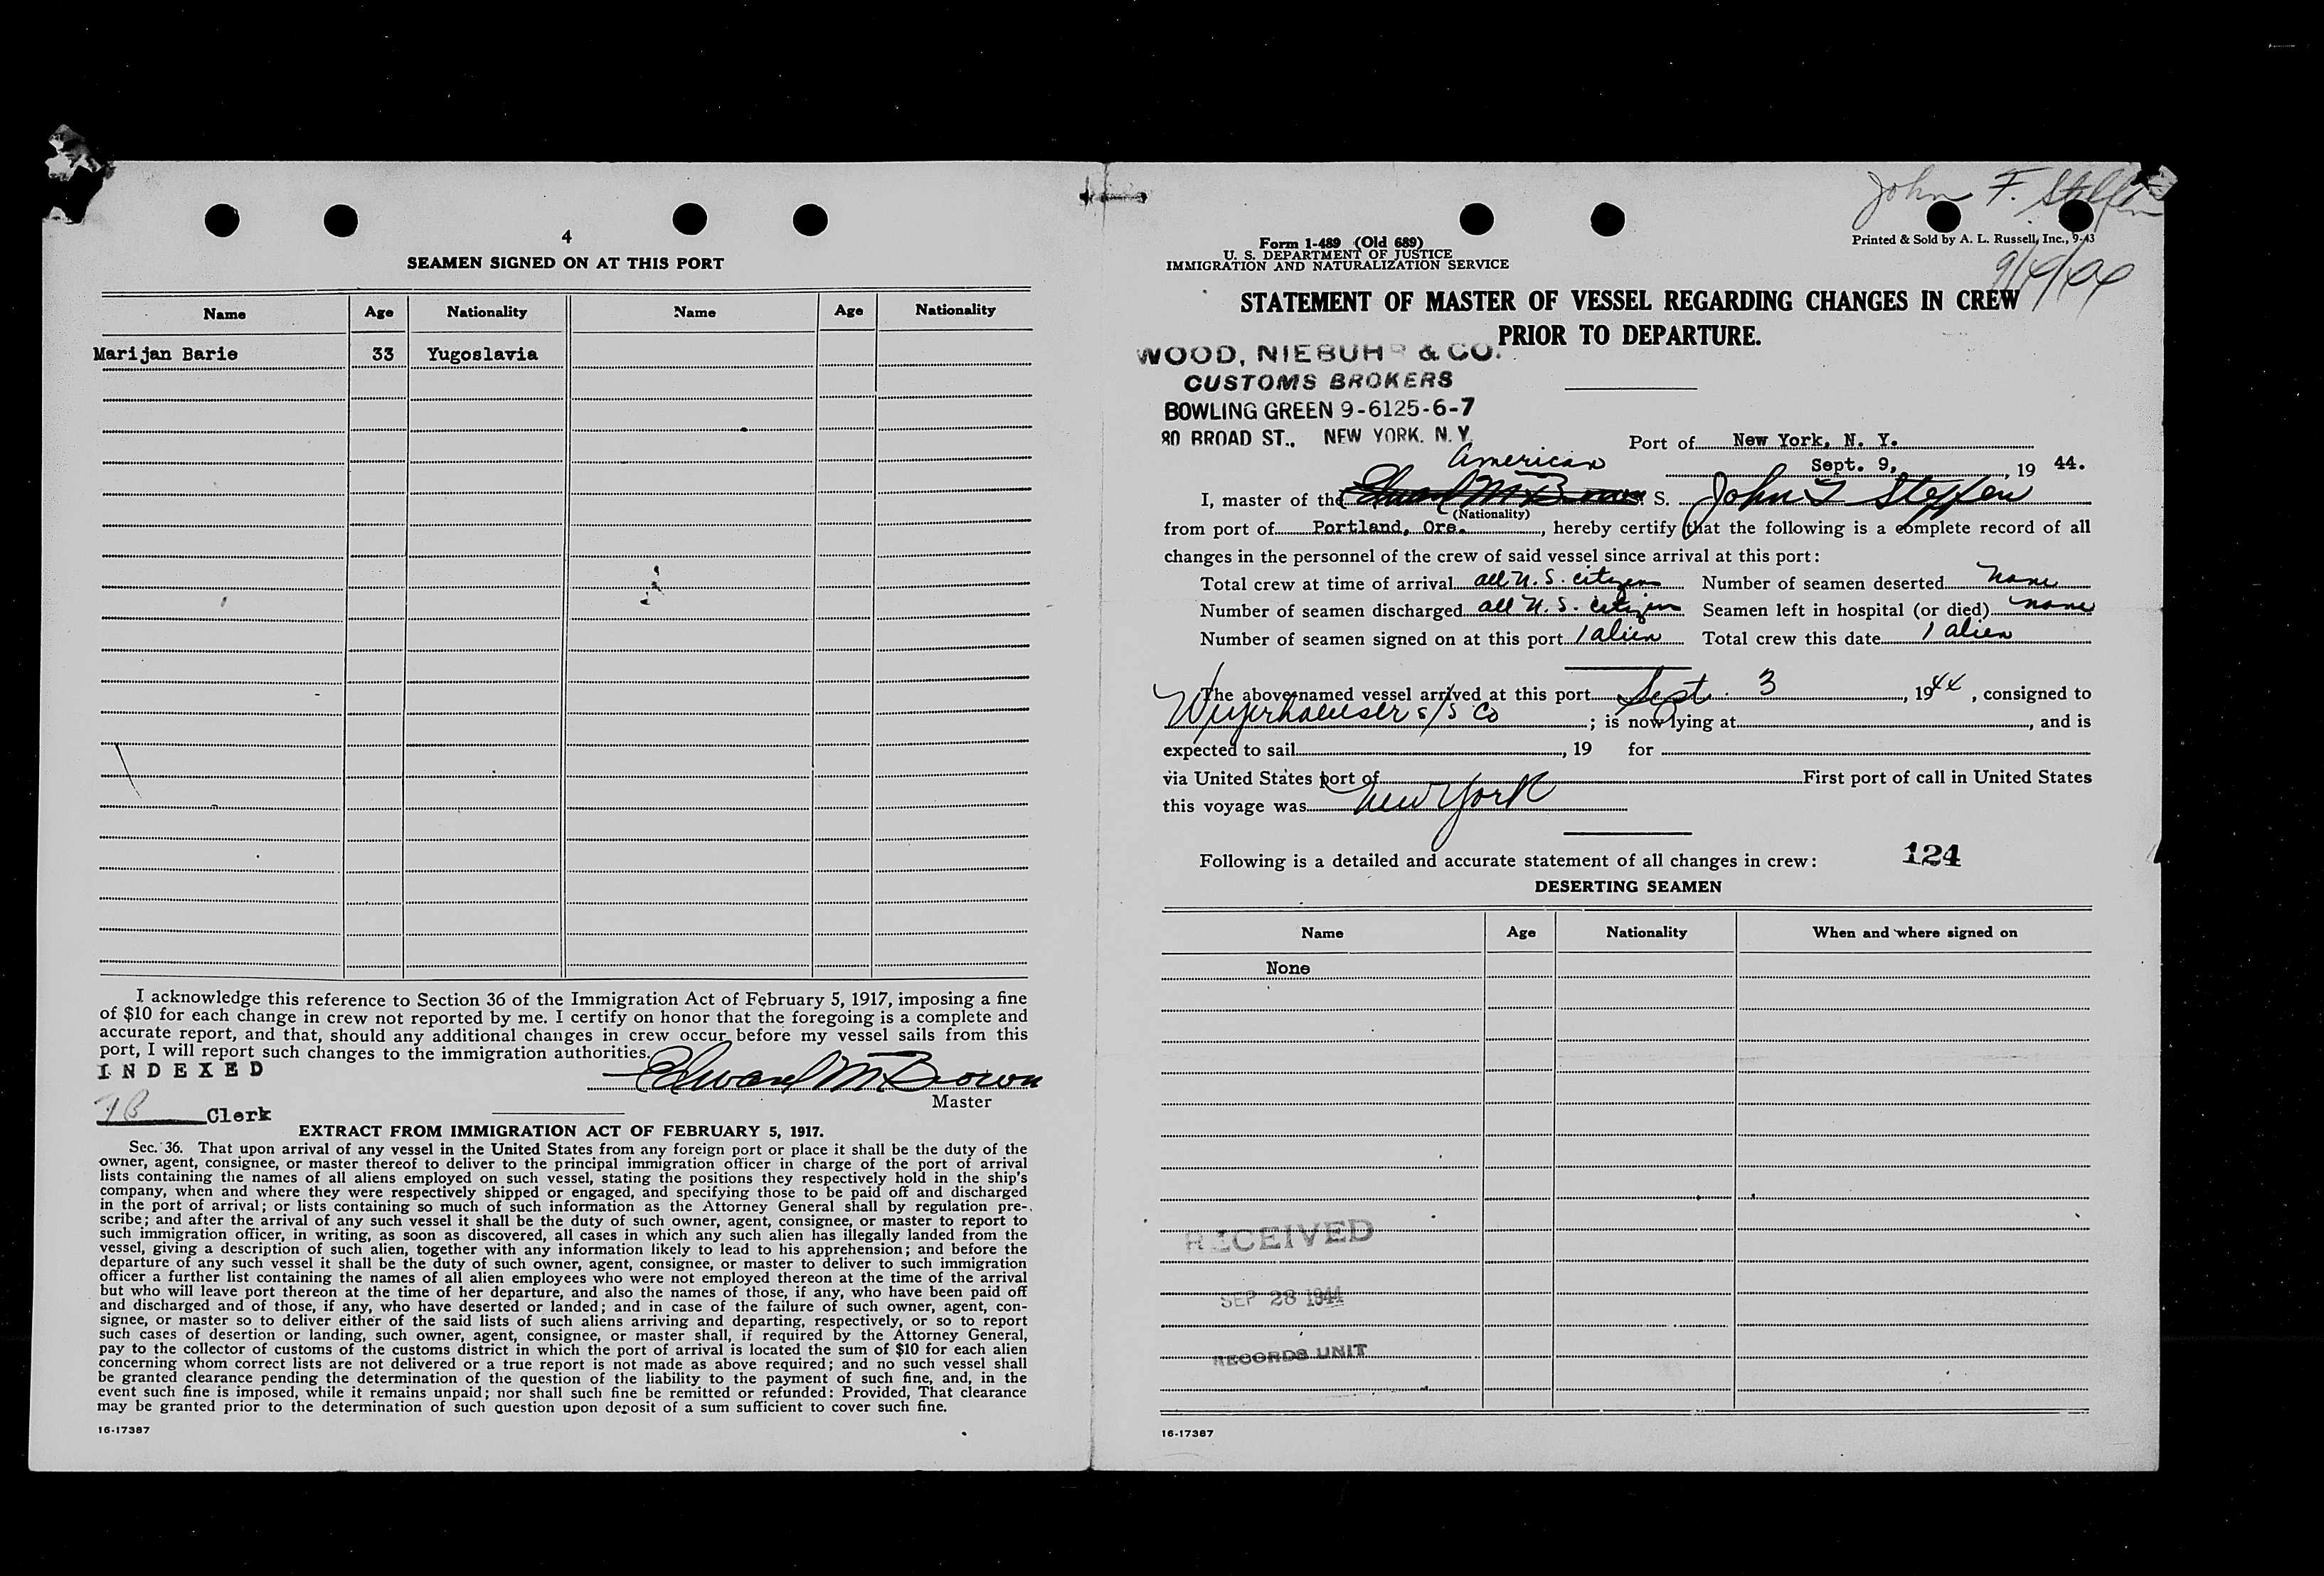 4
SEAMEN SIGNED ON AT THIS PORT
Name Age Nationality Name Age Nationality
Marijan Barie 33 Yugoslavia
I acknowledge this reference to Section 36 of the Immigration Act of February 5, 1917, imposing a fine
of $10 for each change in crew not reported by me. I certify on honor that the foregoing is a complete and
accurate report, and that, should any additional changes in crew occur before my vessel sails from this
port, I will report such changes to the immigration authorities.
INDEXED
Edward M Brown
Master
Clerk
EXTRACT FROM IMMIGRATION ACT OF FEBRUARY 5, 1917.
Sec. 36. That upon arrival of any vessel in the United States from any foreign port or place it shall be the duty of the
owner, agent, consignee, or master thereof to deliver to the principal immigration officer in charge of the port of arrival
lists containing the names of all aliens employed on such vessel, stating the positions they respectively hold in the ship's
company, when and where they were respectively shipped or engaged, and specifying those to be paid off and discharged
in the port of arrival; or lists containing so much of such information as the Attorney General shall by regulation pre-
scribe; and after the arrival of any such vessel it shall be the duty of such owner, agent, consignee, or master to report to
such immigration officer, in writing, as soon as discovered, all cases in which any such alien has illegally landed from the
vessel, giving a description of such alien, together with any information likely to lead to his apprehension; and before the
departure of any such vessel it shall be the duty of such owner, agent, consignee, or master to deliver to such immigration
officer a further list containing the names of all alien employees who were not employed thereon at the time of the arrival
but who will leave port thereon at the time of her departure, and also the names of those, if any, who have been paid off
and discharged and of those, if any, who have deserted or landed; and in case of the failure of such owner, agent, con-
signee, or master so to deliver either of the said lists of such aliens arriving and departing, respectively, or so to report
such cases of desertion or landing, such owner, agent, consignee, or master shall, if required by the Attorney General,
pay to the collector of customs of the customs district in which the port of arrival is located the sum of $10 for each alien
concerning whom correct lists are not delivered or a true report is not made as above required; and no such vessel shall
be granted clearance pending the determination of the question of the liability to the payment of such fine, and, in the
event such fine is imposed, while it remains unpaid; nor shall such fine be remitted or refunded: Provided, That clearance
may be granted prior to the determination of such question upon deposit of a sum sufficient to cover such fine.
16-17387
John F. Steffen
Form 1-489 (Old 689)
U. S. DEPARTMENT OF JUSTICE
IMMIGRATION AND NATURALIZATION SERVICE
Printed & Sold by A. L. Russell, Inc., 9-43
STATEMENT OF MASTER OF VESSEL REGARDING CHANGES IN CREW
PRIOR TO DEPARTURE.
WOOD, NIEBUHR & CO.
CUSTOMS BROKERS
BOWLING GREEN 9-6125-6-7
80 BROAD ST., NEW YORK. N. Y.
Port of New York, N. Y.
Sept. 9, 19 44.
American
I, master of the Edward M Brown S. John F Steffen
(Nationality)
from port of Portland, Ore., hereby certify that the following is a complete record of all
changes in the personnel of the crew of said vessel since arrival at this port:
Total crew at time of arrival all U. S. citizen Number of seamen deserted none
Number of seamen discharged all U. S. citizen Seamen left in hospital (or died) none
Number of seamen signed on at this port 1 alien Total crew this date 1 alien
The above-named vessel arrived at this port Sept. 3, 1944, consigned to
Weyerhaeuser s/s Co; is now lying at, and is
expected to sail, 19 for
via United States port of First port of call in United States
this voyage was New York
Following is a detailed and accurate statement of all changes in crew: 124
DESERTING SEAMEN
Name Age Nationality When and where signed on
None
RECEIVED
SEP 28 1944
RECORDS UNIT
16-17387